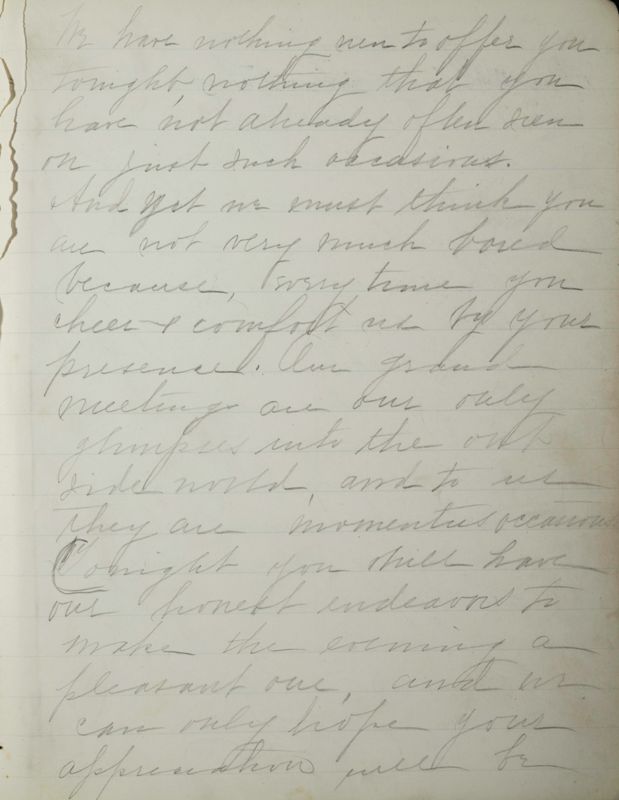 We have nothing new to offer you
tonight, nothing that you
have not already often seen
on just such occasions.
And yet we must think you
are not very much bored
because, every time you
cheer & comfort us by your
presence. Our grand
meetings are our only
glimpses into the out
side world, and to us
they are momentus occasions
Tonight you shall have
our honest endeavors to
make the evening a
pleasant one, and we
can only hope your
appreciation will be